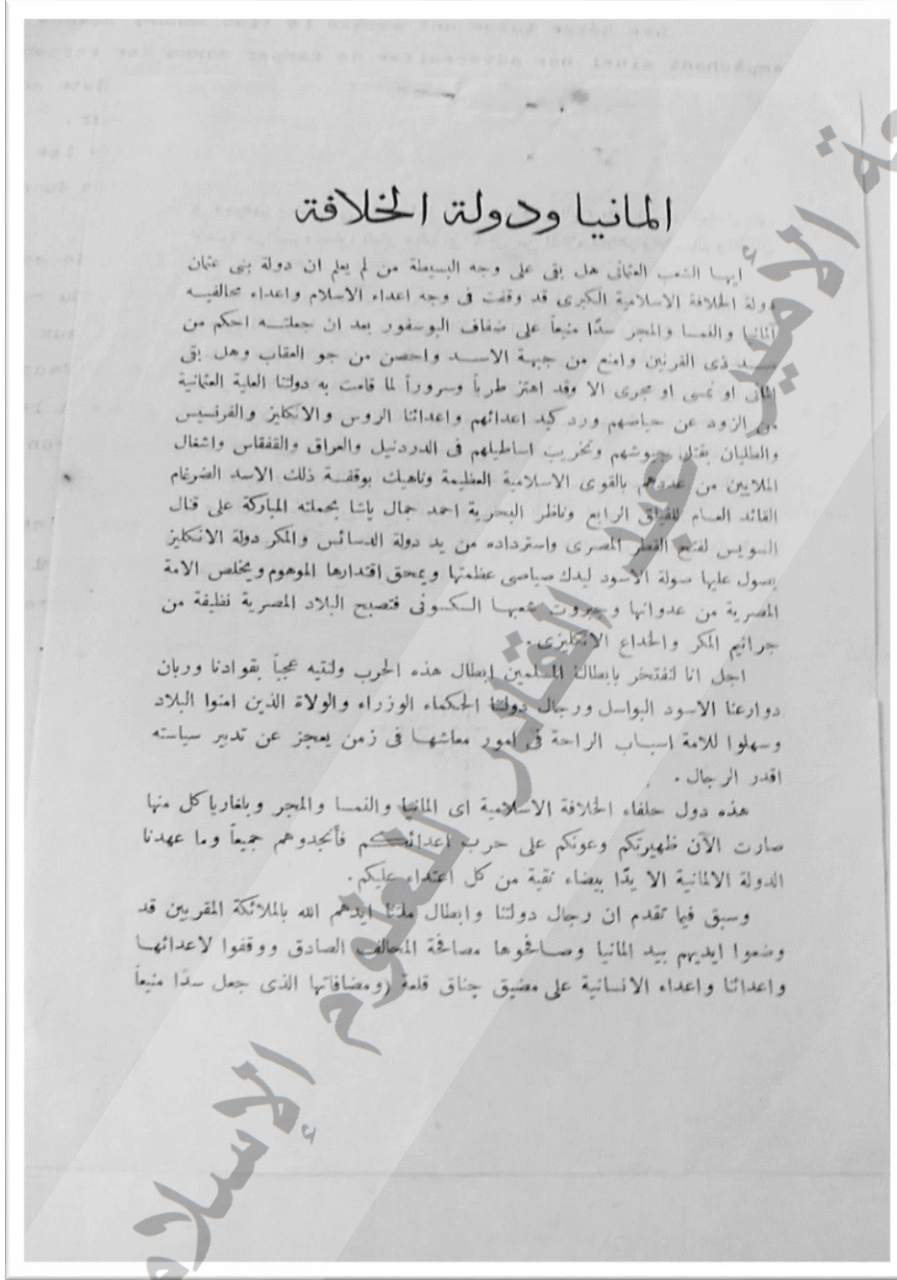 المانيا ودولة الخلافة
ايها الشعب العثمانى هل بقى على وجه البسيطة من لم يعلم ان دولة بنى عثمان
دولة الخلافة الاسلامية الكبرى قد وقفت فى وجه اعداء الاسلام واعداء محالفيه
المانيا والنمسا والمجر سدّا منيعاً على ضفاف البوسفور بعد ان جعلتـه احكم من
سـد ذى القرنين وامنع من جبهة الاسـد واحصن من جو العقاب وهل بقى
المانى او نمسى او مجرى الا وقد اهتز طرباً وسروراً لما قامت به دولتنا العلية العثمانية
من الزود عن حياضهم ورد كيد اعدائهم واعدائنا الروس والانكليز والفرنسيس
والطليان بقتل جيوشهم وتخريب اساطيلهم فى الدردنيل والعراق والقفقاس واشغال
الملايين من عدوهم بالقوى الاسلامية العظيمة وناهيك بوقفـة ذلك الاسد الضرغام
القائد العـام للفيلق الرابع وناظر البحرية احمد جمال پاشا بحملته المباركة على قنال
السويس لفتح القطر المصرى واسترداده من يد دولة الدسائس والمكر دولة الانكليز
يصول عليها صولة الاسود ليدك صياصى عظمتها ويمحق اقتدارها الموهوم ويخلص الامة
المصرية من عدوانها وجبروت شعبهـا السكسونى فتصبح البلاد المصرية نظيفة من
جراثيم المكر والخداع الانكليزى.
اجل انا لنفتخر بابطالنا المسلمين ابطال هذه الحرب ولنتيه عجباً بقوادنا وربان
دوارعنا الاسود البواسل ورجال دولتنا الحكماء الوزراء والولاة الذين امنوا البلاد
وسهلوا للامة اسبـاب الراحة فى امور معاشها فى زمن يعجز عن تدبير سياسته
اقدر الرجال.
هذه دول حلفاء الخلافة الاسلامية اى المانيا والنمسا والمجر وبلغاريا كل منها
صارت الآن ظهيرتكم وعونكم على حرب اعدائـكم فأنجدوهم جميعاً وما عهدنا
الدولة الالمانية الا يدّا بيضاء نقية من كل اعتداء عليكم.
وسبق فيما تقدم ان رجال دولتنا وابطال ملتنا ايدهم الله بالملائكة المقربين قد
وضعوا ايديهم بيد المانيا وصـافحوها مصافحة المحالف الصادق ووقفوا لاعدائهـا
واعدائنا واعداء الانسانية على مضيق چناق قلعة (ومضافاتها الذى جعل سدّا منيعاً
الأمير عبد القادر للعلوم الإسلام